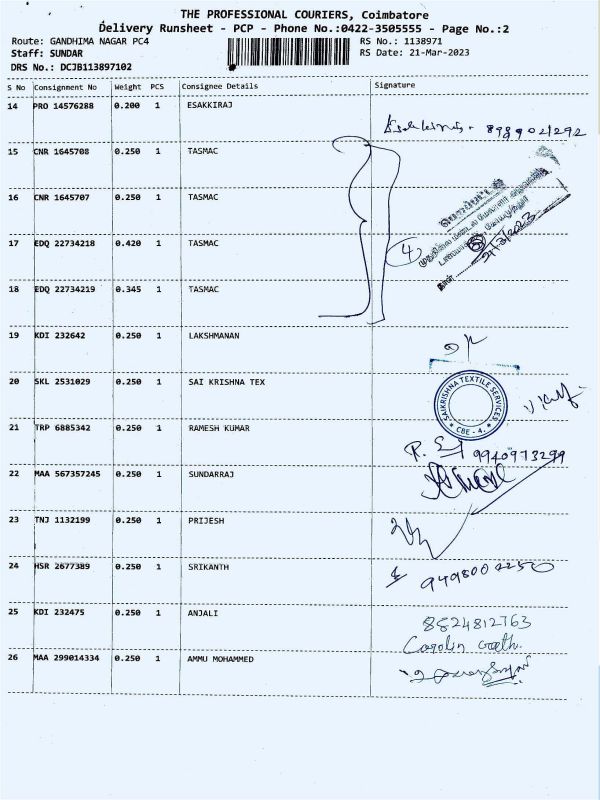 THE PROFESSIONAL COURIERS, Coimbatore
Delivery Runsheet - PCP - Phone No.:0422-3505555 - Page No.:2
Route: GANDHIMA NAGAR PC4 RS No.: 1138971
Staff: SUNDAR RS Date: 21-Mar-2023
DRS No.: DCJB113897102
S No Consignment No Weight PCS Consignee Details Signature
14 PRO 14576288 0.200 1 ESAKKIRAJ
8989021292
15 CNR 1645708 0.250 1 TASMAC
16 CNR 1645707 0.250 1 TASMAC
17 EDQ 22734218 0.420 1 TASMAC
4
18 EDQ 22734219 0.345 1 TASMAC
19 KDI 232642 0.250 1 LAKSHMANAN
20 SKL 2531029 0.250 1 SAI KRISHNA TEX
SAIKRISHNA TEXTILE SERVICES
* CBE - 4. *
21 TRP 6885342 0.250 1 RAMESH KUMAR
9940973299
22 MAA 567357245 0.250 1 SUNDARRAJ
23 TNJ 1132199 0.250 1 PRIJESH
24 HSR 2677389 0.250 1 SRIKANTH
9498002250
25 KDI 232475 0.250 1 ANJALI
8524812763
Carolin
26 MAA 299014334 0.250 1 AMMU MOHAMMED